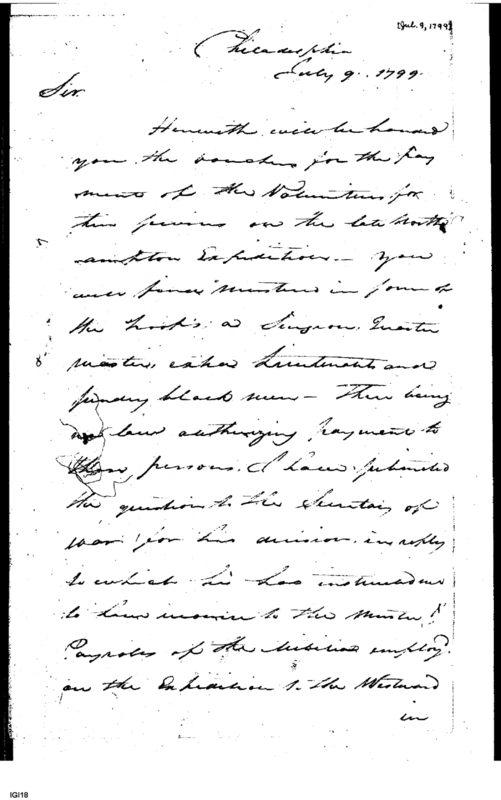 [Jul. 9, 1799]
Philadelphia
July 9. 1799.
Sir.
Herewith will be handed
you the vouchers for the Pay
ment of the Volunteers for
their services on the late North
ampton Expedition.— You
will find musterd in some of
the Troops a Surgeon, Quarter
master, extra Lieutenants and
sundry black men — There being
no law authorizing payment to
these persons, I have submitted
the question to the Secretary of
War for his decision, in reply
to which he has instructed me
to have recourse to the Muster &
Payrolls of the Militia employd.
on the Expedition to the Westward
in
IGI18